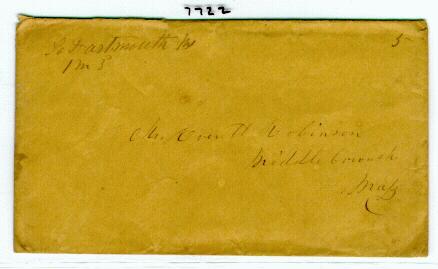 7722
So Dartmouth Ms 5
1 M 3
Mr. Everett Robinson
Middleborough
Mass